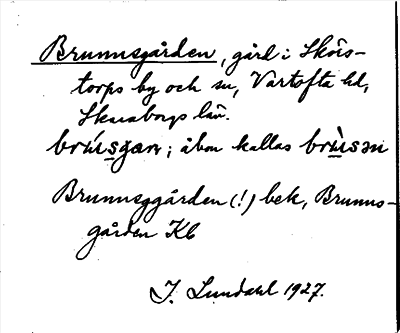 Brunnsgården, gård i Skörs-
torps by och sn, Vartofta hd,
Skaraborgs län.
brú̀sgan; åbon kallas brù̀sən
Brunnsggården (!) bek, Brunns-
gården Kb
J. Lundahl 1927.